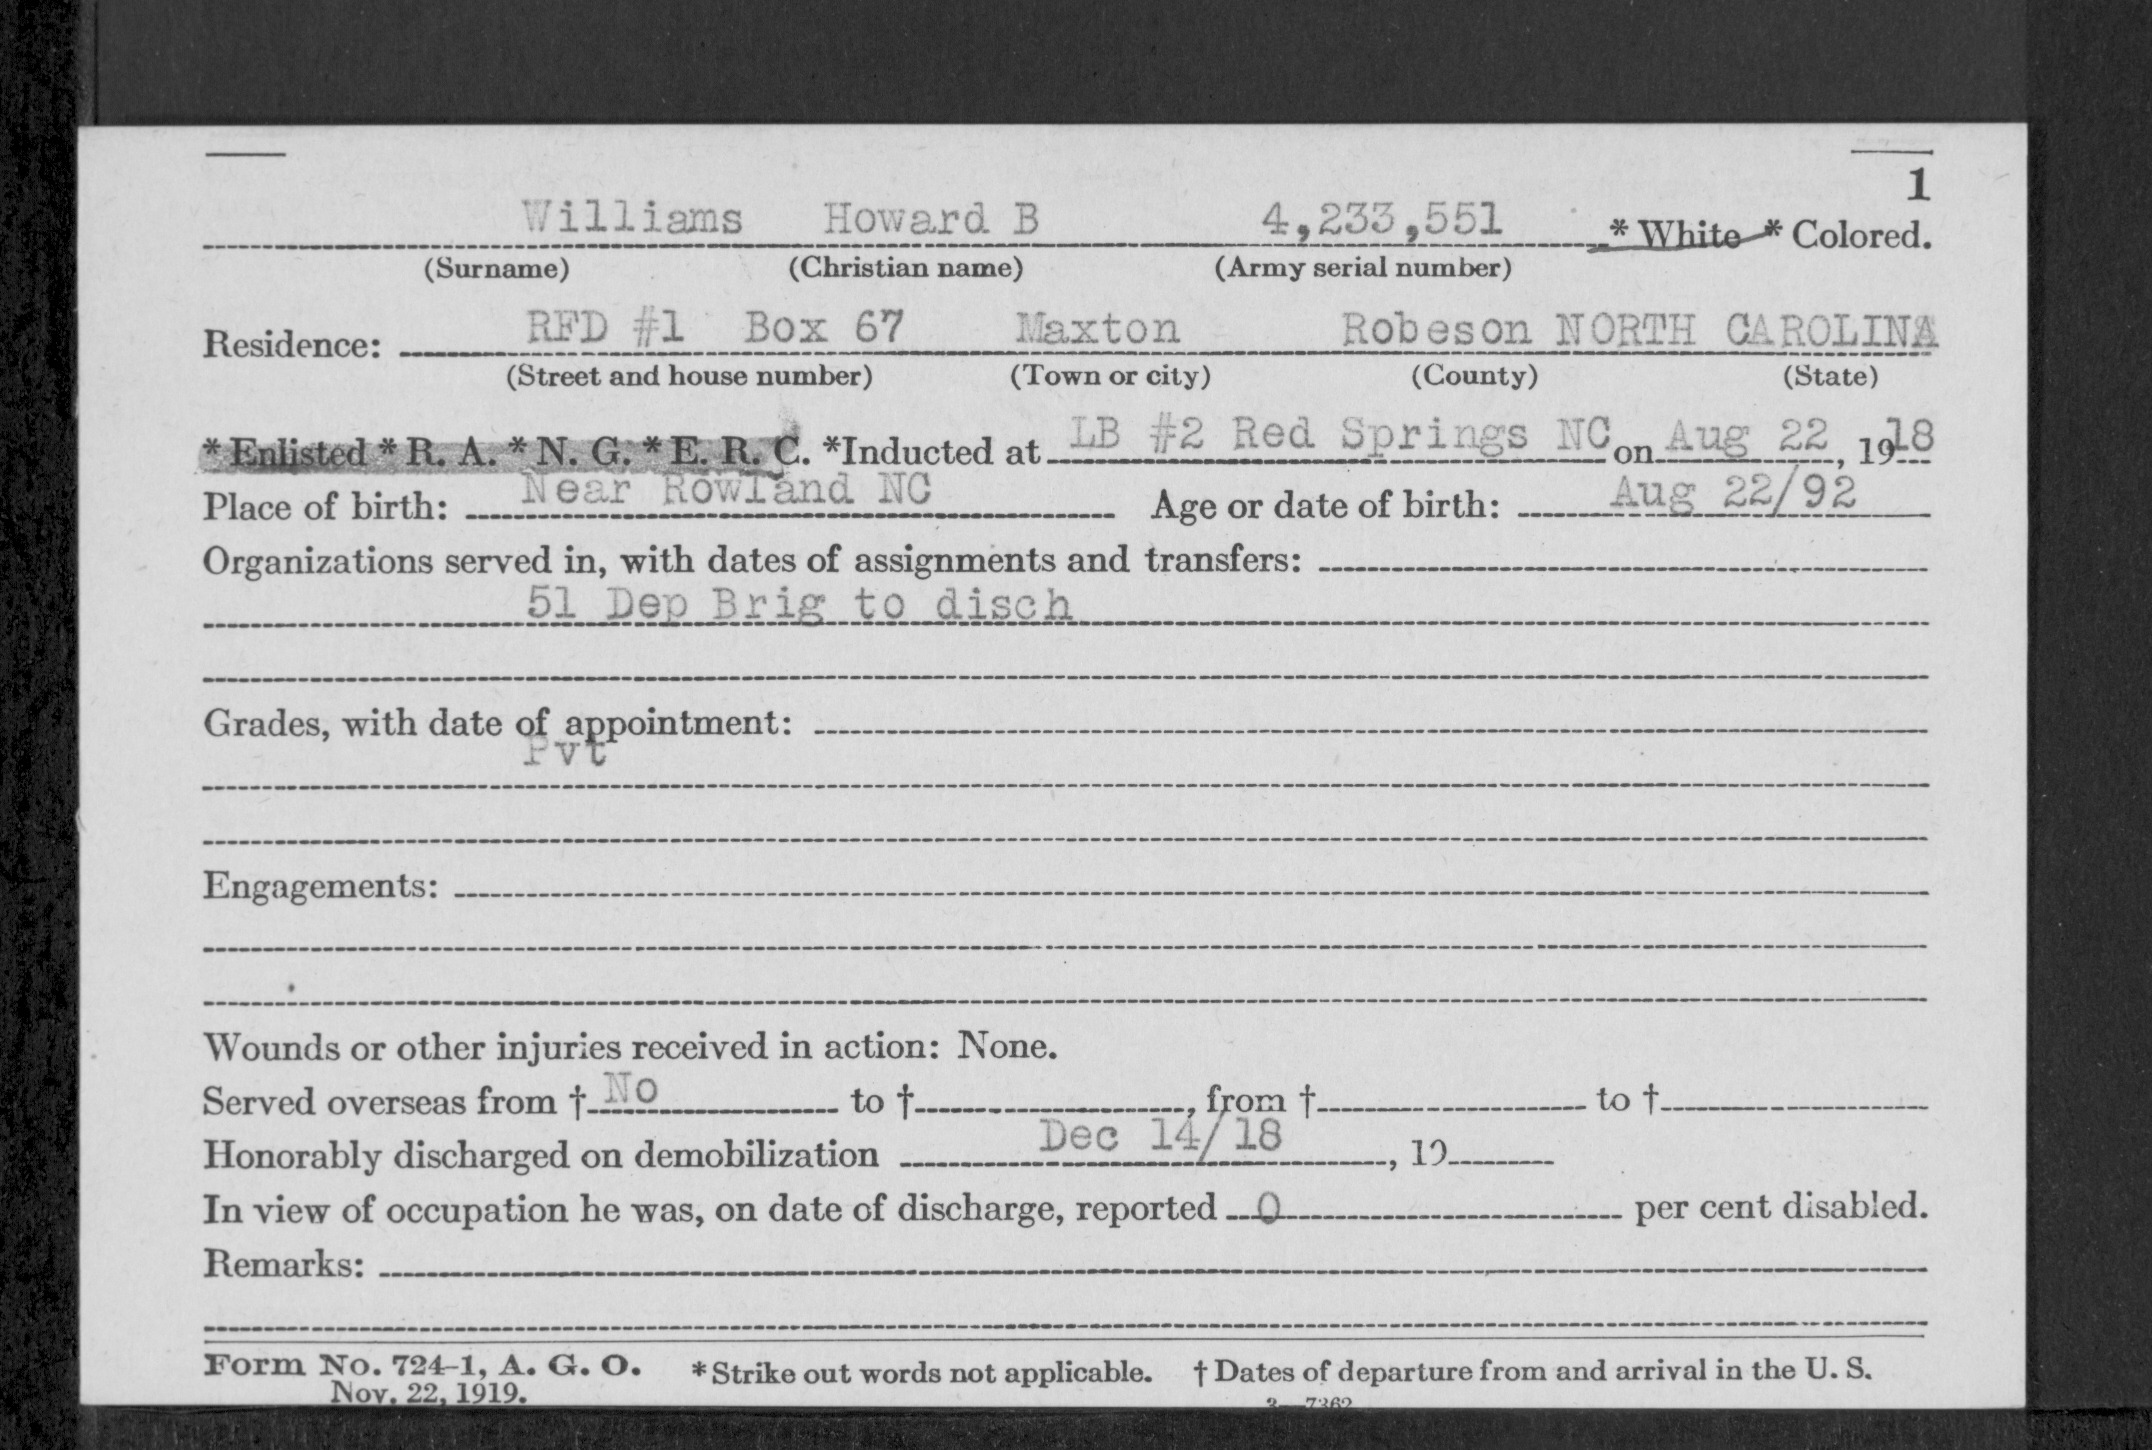 1
Williams Howard B 4,233,551 * White * Colored.
(Surname) (Christian name) (Army serial number)
Residence: RFD #1 Box 67 Maxton Robeson NORTH CAROLINA
(Street and house number) (Town or city) (County) (State)
* Enlisted * R. A. * N. G. * E. R. C. *Inducted at LB #2 Red Springs NC on Aug 22, 1918
Place of birth: Near Rowland NC Age or date of birth: Aug 22/92
Organizations served in, with dates of assignments and transfers:
51 Dep Brig to disch
Grades, with date of appointment:
Pvt
Engagements:
Wounds or other injuries received in action: None.
Served overseas from † No to †, from † to †
Honorably discharged on demobilization Dec 14/18, 19
In view of occupation he was, on date of discharge, reported 0 per cent disabled.
Remarks:
Form No. 724-1, A. G. O. * Strike out words not applicable. † Dates of departure from and arrival in the U. S.
Nov. 22, 1919. 3—7362